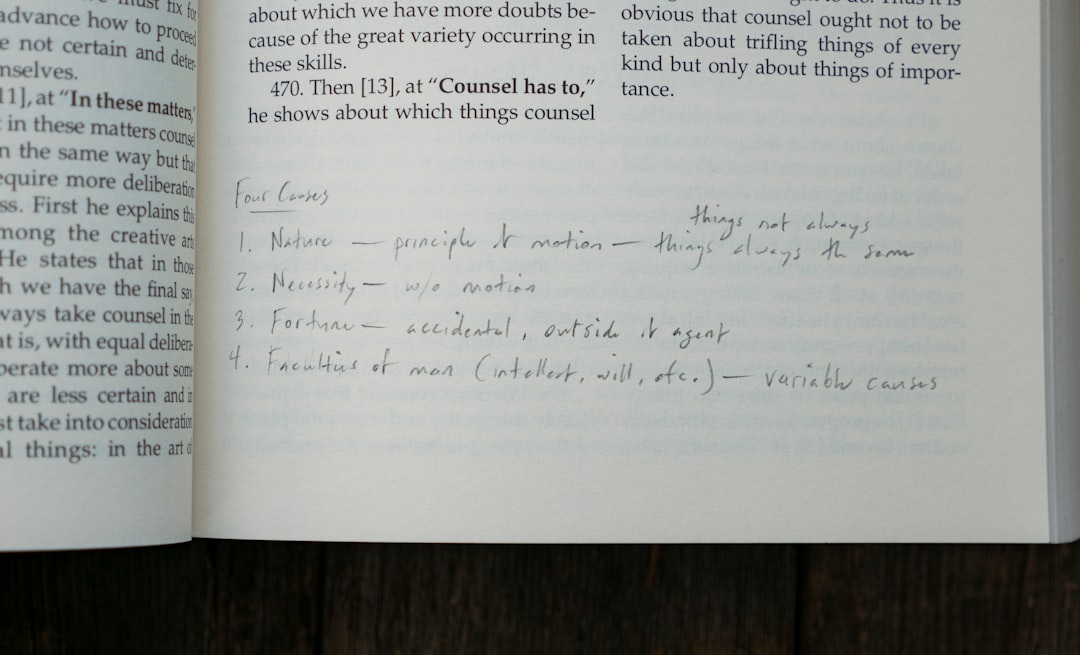 must fix for
advance how to proceed
e not certain and deter-
nselves.
11], at “In these matters,”
in these matters counsel
n the same way but that
equire more deliberation
ss. First he explains this
mong the creative arts
He states that in those
h we have the final say
ways take counsel in the
at is, with equal delibera-
perate more about some
are less certain and in
st take into consideration
al things: in the art of
about which we have more doubts be-
cause of the great variety occurring in
these skills.
470. Then [13], at “Counsel has to,”
he shows about which things counsel
obvious that counsel ought not to be
taken about trifling things of every
kind but only about things of impor-
tance.
Four Causes
things not always
1. Nature — principle of motion — things always the same
2. Necessity — w/o motion
3. Fortune — accidental, outside of agent
4. Faculties of man (intellect, will, etc.) — variable causes